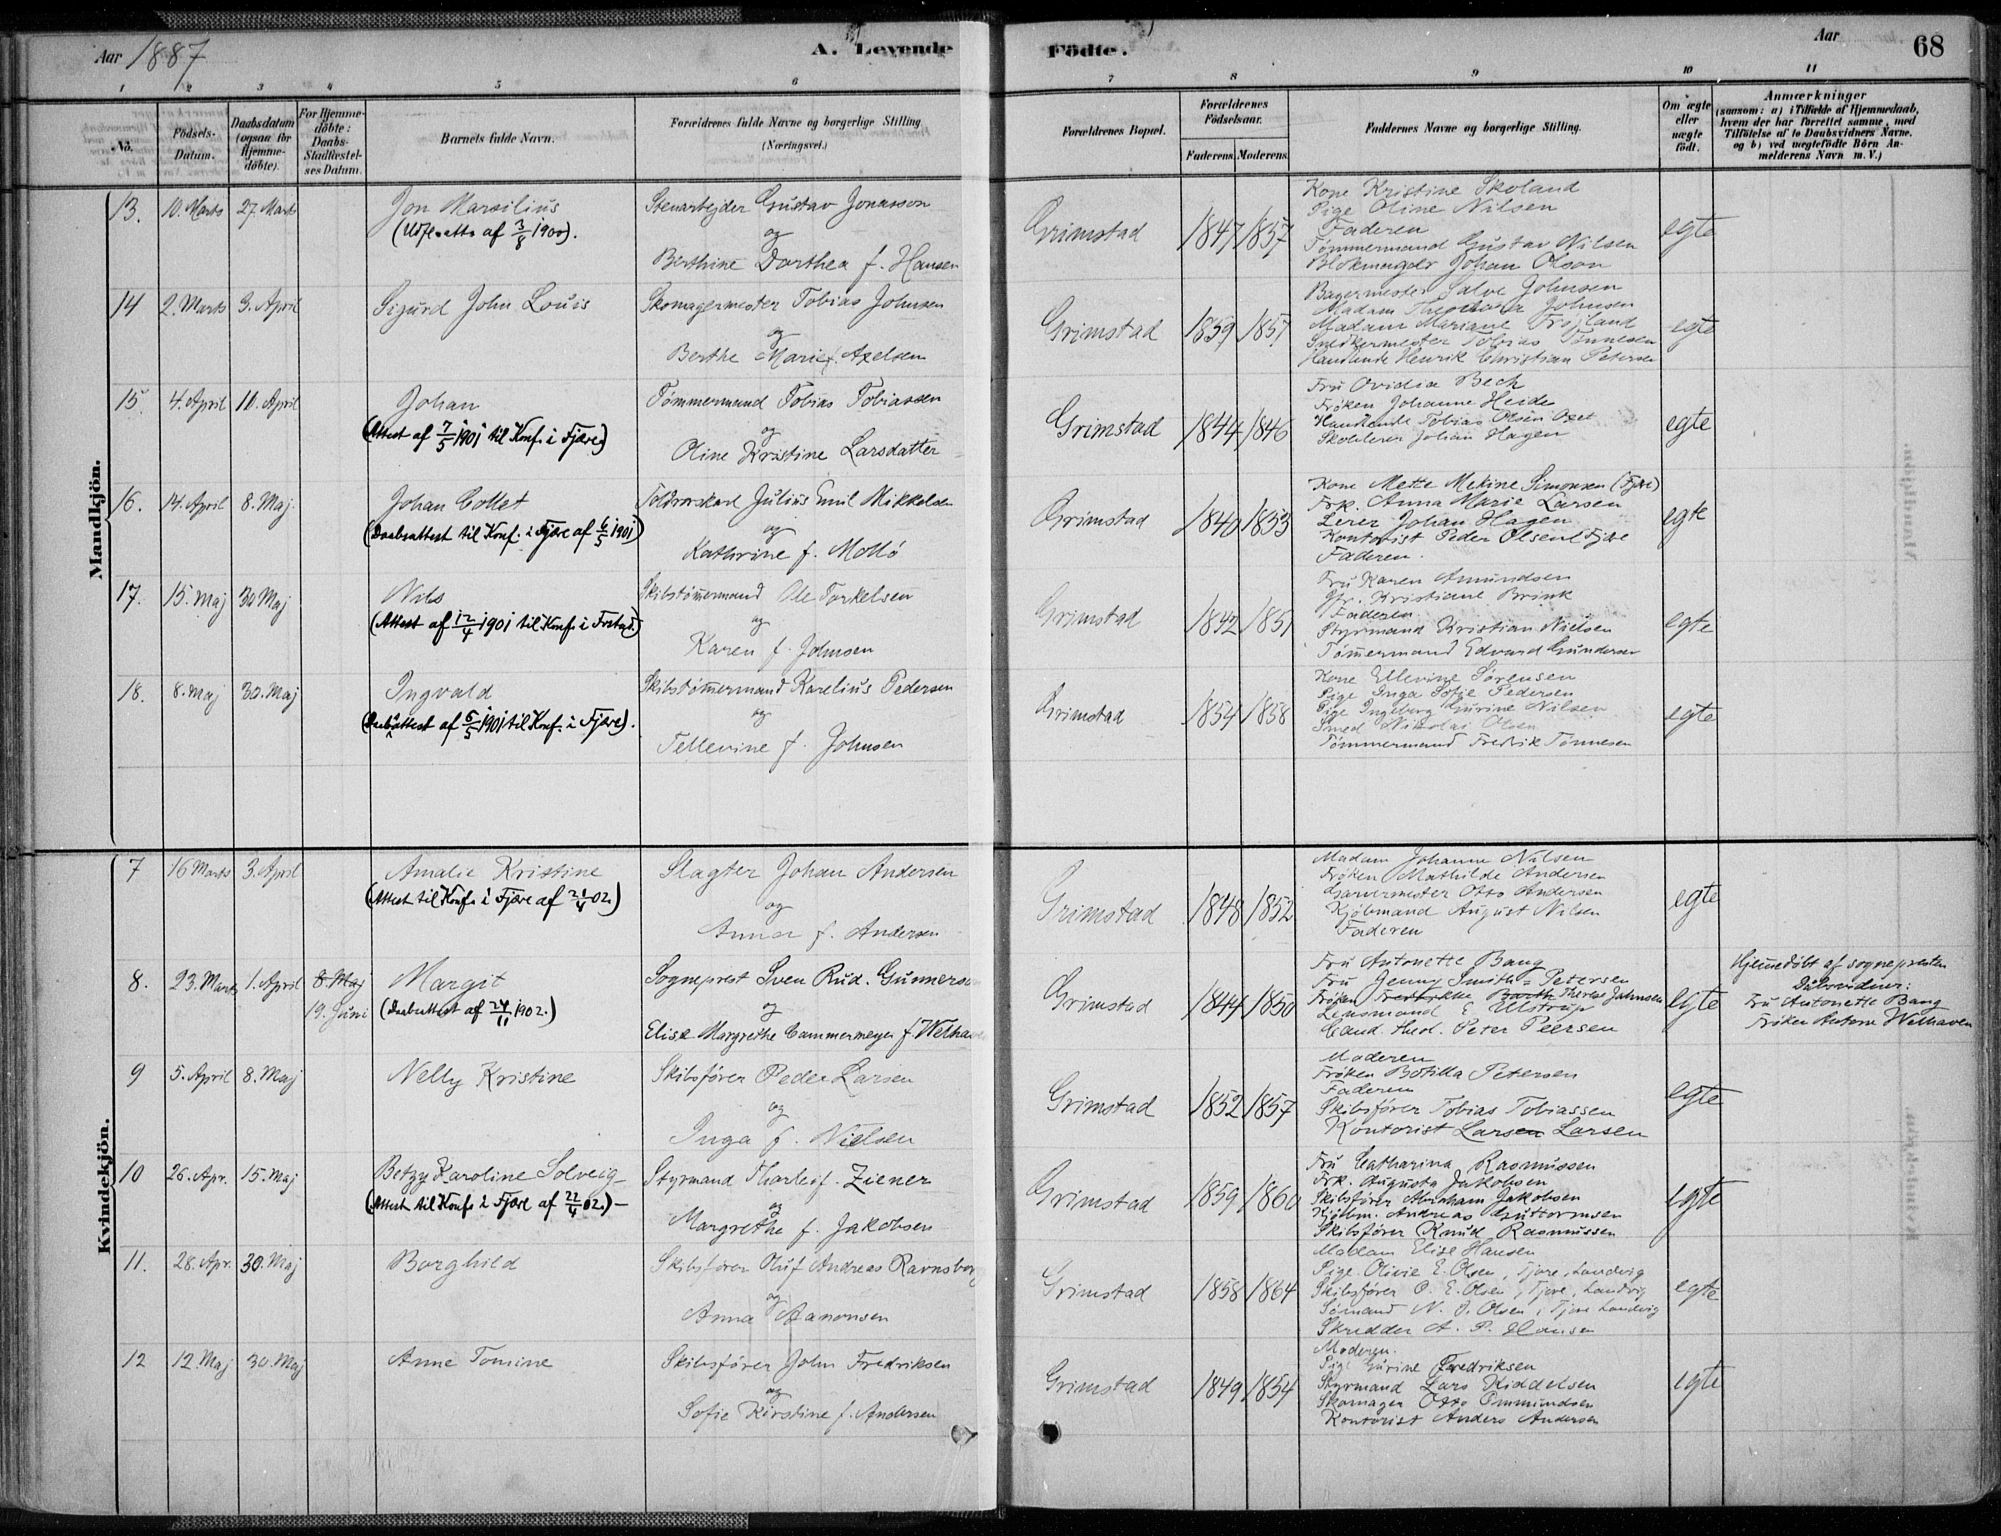 Aar 1887
A. Levende Födte.
Aar
68
1 2 3 4 5 6 7 8 9 10 11
No.
Födsels-Datum.
Daabsdatum (ogsaa for Hjemmedöbte).
For Hjemmedöbte: Daabs-Stadfæstelses Datum.
Barnets fulde Navn.
Forældrenes fulde Navne og borgerlige Stilling (Næringsvei.)
Forældrenes Bopæl.
Forældrenes Födselsaar.
Faderens. Moderens.
Faddernes Navne og borgerlige Stilling.
Om ægte eller uægte födt.
Anmærkninger
(saasom: a) i Tilfælde af Hjemmedaab,
hvem der har forrettet samme, med
Tilföielse af to Daabsvidners Navne.
og b) ved uægtefödte Börn An-
melderens Navn m. V.)
Mandkjön.
13. 10. Marts 27. Marts
Jon Marsilius
af 3/8 1900).
Stenarbejder Gustav Jonasson
og
Berthine Dorthea f. Hansen
Grimstad 1847 1857
Kone Kristine Skoland
Pige Oline Nilsen
Faderen
Tømmermand Gustav Nilsen
Blokmager Johan Olson
egte
14 2. Marts 3. April
Sigurd John Louis
Skomagermester Tobias Johnsen
og
Berthe Marie f. Axelsen
Grimstad 1859 1857
Bagermester Salve Johnsen
Madam Theodora Johnsen
Madam Mariane Frøjland
Snedkermester Tobias Tønnesen
Handlende Henrik Christian Petersen
egte
15. 4. April 10. April
Johan
(Attest af 7/5 1901 til Konf. i Fjære)
Tømmermand Tobias Tobiassen
og
Oline Kristine Larsdatter
Grimstad 1844 1846
Fru Ovidia Bech
Frøken Johanne Heide
Handlende Tobias Olsen
Johan Hagen
egte
16. 14. April 8. Maj.
Johan Collet
(Daabsattest til Konf. i Fjære af 6/5 1901)
Julius Emil Mikkelsen
og
Kathrine f. Mollø
Grimstad 1840 1853
Kone Mette Mekine Simonsen (Fjære)
Frk. Anna Marie Larsen
Lerer Johan Hagen
Kontorist Peder Olsen Fjære
Faderen.
egte
17. 15. Maj 30 Maj
Nils
(Attest af 12/4 1901 til Konf. i
Skibstømmermand Ole Torkelsen
og
Karen f. Johnsen
Grimstad 1842 1851
Fru Karen Amundsen
Kristiane Brink
Faderen
Styrmand Kristian Nielsen
Tømmermand Edvard Gundersen
egte
18. 8. Maj 30. Maj
Ingvald
(Daabsattest af 5/5 1901 til Konf. i Fjære).
Skibstømmermand Karelius Pedersen
og
Tellevine f. Johnsen
Grimstad 1854 1858
Kone Ellevine Sørensen
Pige Inga Sofie Pedersen
Pige Ingeborg Gurine Nilsen
Smed Nikolai Olsen
Tømmermand Fredrik Tønnesen
egte
Kvindekjön.
7 16 Marts 3. April
Amalie Kristine
(Attest til Konf. i Fjære af 21/4 02.)
Slagter Johan Andersen
og
Anna f. Andersen
Grimstad 1848 1852
Madam Johanne Nilsen
Frøken Mathilde Andersen
Garvermester Otto Andersen
Kjøbmand August Nilsen
Faderen
egte
8. 23. Marts 1. April 8. Maj
19. Juni
Margit
(Daabsattest af 24/11 1902.)
Sogneprest Sven Rud. Gunnersen
og
Elise Margrethe Cammermeyer f. Welhaven
Grimstad 1844 1850
Fru Antonette Bang
Fru Jenny Smith-Petersen
Frøken Fredrikke Barth Therese Jahnsen
Lensmand E Ellstrup
Cand. theol. Peter Peersen
egte
Hjemmedøbt af sognepresten
Dåbsvidner:
Fru Antonette Bang
Frøken Antone Welhaven
9 5. April 8. Maj
Nelly Kristine
Skibsfører Peder Larsen
og
Inga f. Nielsen
Grimstad 1852 1857
Moderen
Frøken Botilla Petersen
Faderen
Skibsfører Tobias Tobiassen
Kontorist Larsen Larsen
egte
10 26. Apr. 15. Maj
Betzy Karoline Solveig
(Attest til Konf. i Fjære af 22/4 02.)
Styrmand Tharlef. Ziener
og
Margrethe f. Jakobsen
Grimstad 1859 1860
Fru Catharina Rasmussen
Frk. Augusta Jakobsen
Skibsfører Abraham Jakobsen
Kjøbm. Andreas Guttormsen
Skibsfører Knud Rasmussen
egte
11. 28. Apr. 30. Maj
Borghild
Skibsfører Oluf Andreas Ravnsborg
og
Anna Aanonsen
Grimstad 1858 1864
Madam Elise Hansen
Pige Olivie E. Olsen, Fjære, Landvig
Skibsfører O. E. Olsen, Fjære, Landvig
Sømand N. O. Olsen, Fjære Landvig
Skredder A. P. Hansen
egte
12 12. Maj 30. Maj
Anne Tomine
Skibsfører John Fredriksen
og
Sofie Kirstine f. Andersen
Grimstad 1849 1854
Moderen.
Pige Gurine Fredriksen
Styrmand Lars Kiddelsen
Skomager Otto Ommundsen
Kontorist Anders Andersen
egte